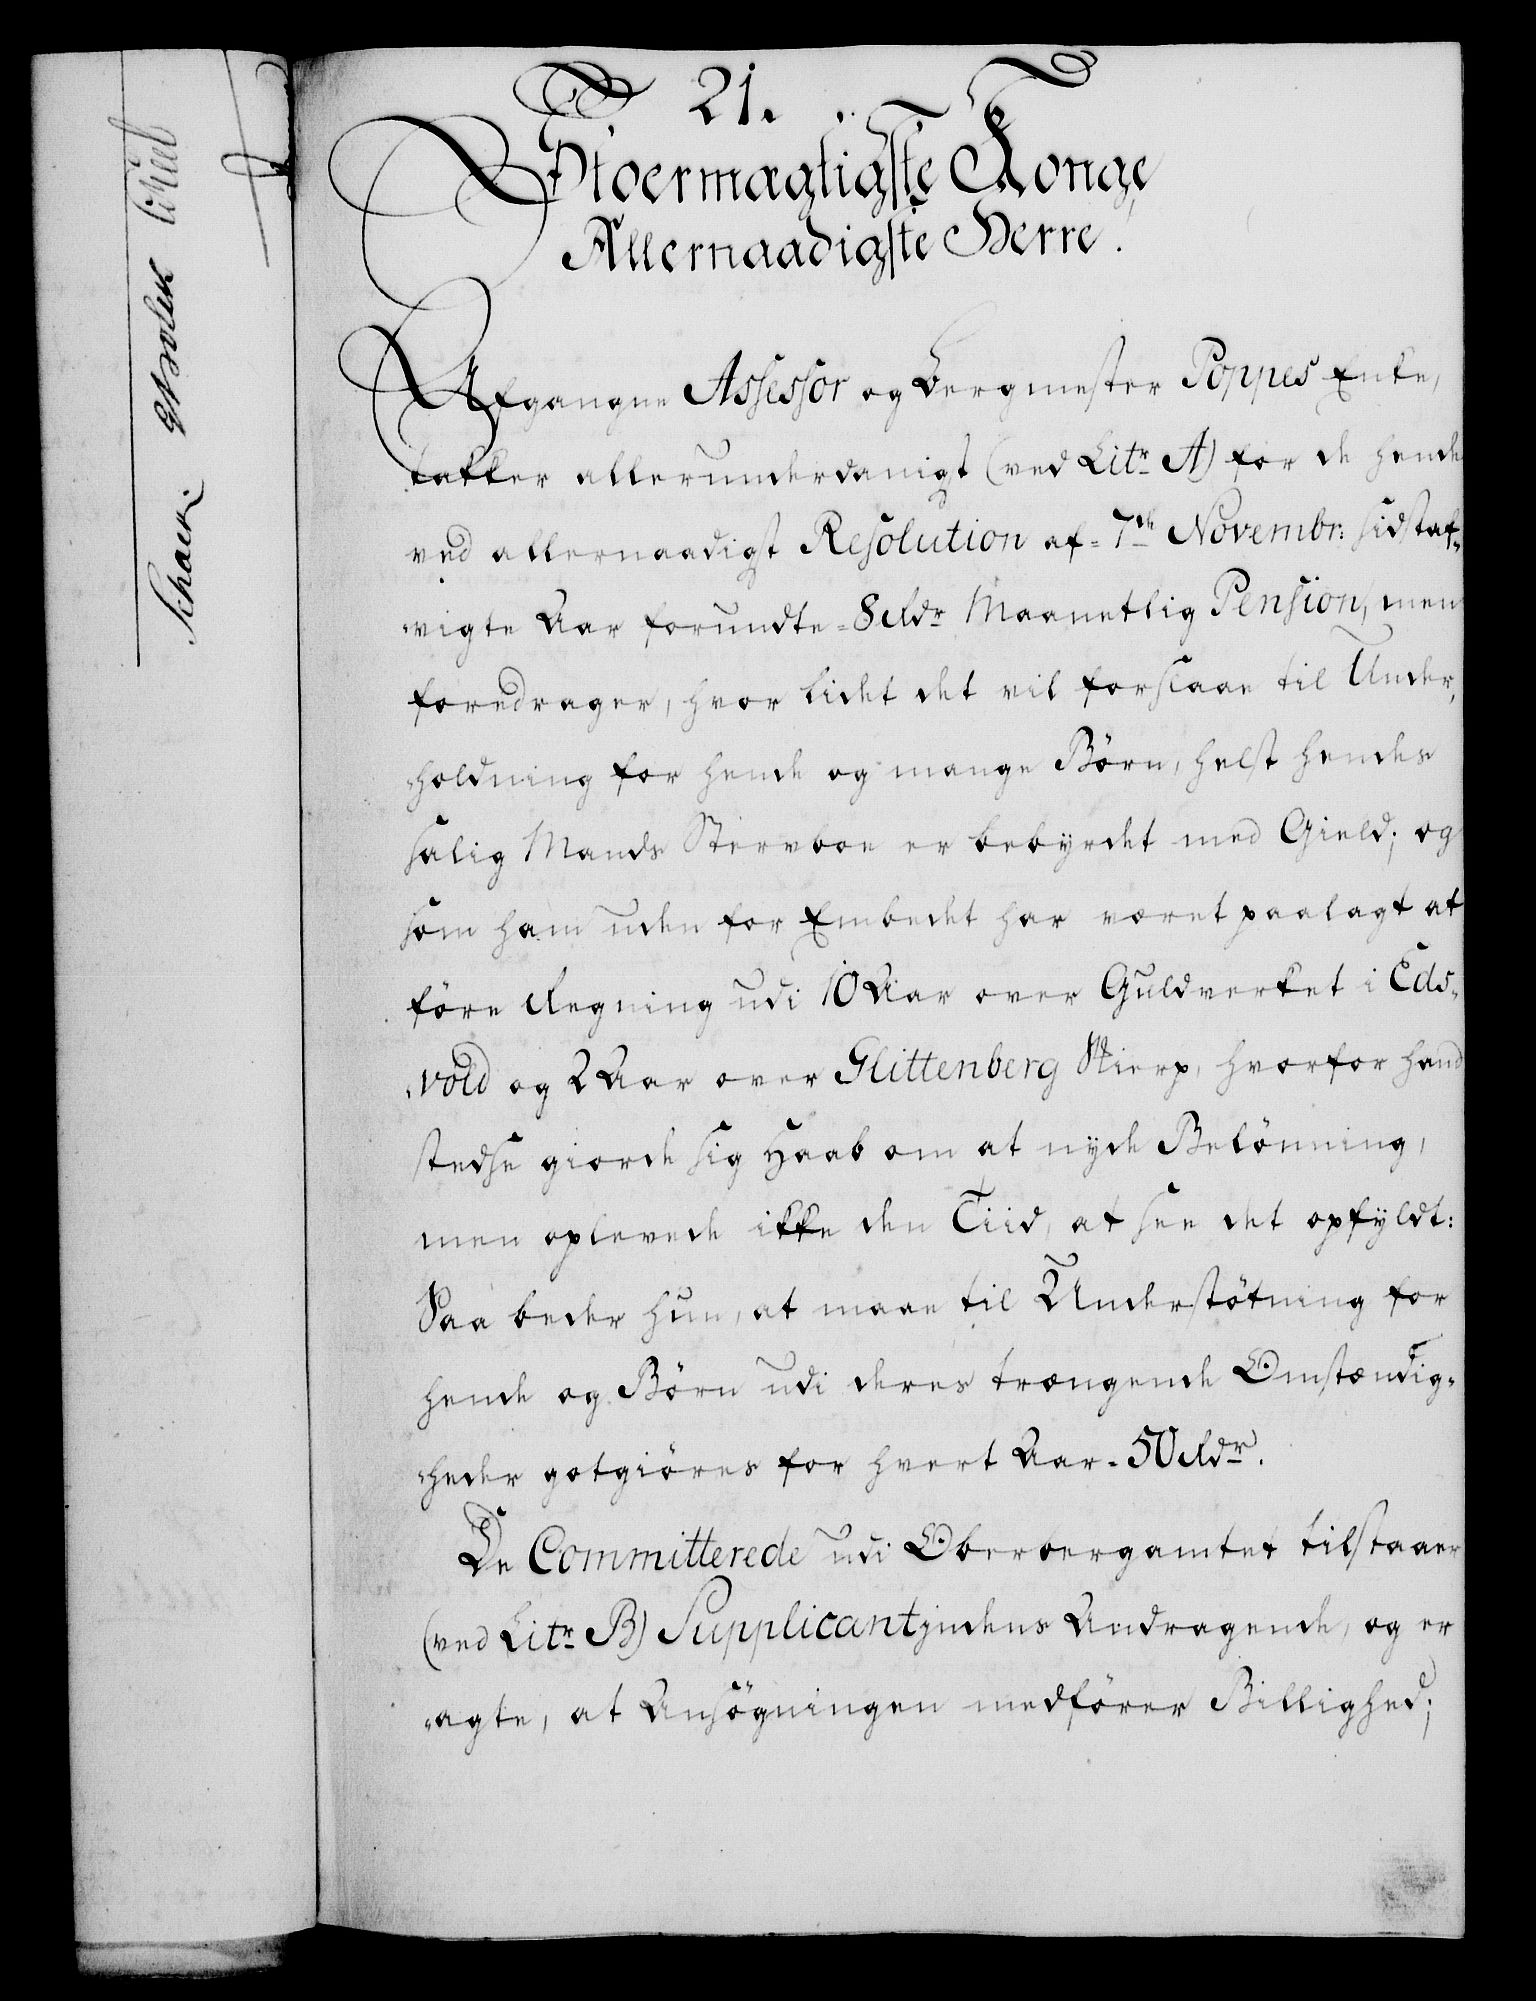 21.
Stoermægtigste Konge,
Allernaadigste Herre!
Afgangne Assessor og Bergmester Poppes Enke,
takker allerunderdanigst (ved Litr A) for de hende
ved allernaadigst Resolution af 7de Novembr: sidstaf-
vigte Aar forundte 8 Rdr Maanetlig Pension, men
foredrager, hvor lidet det vil forslaae til Under-
holdning for hende og mange Börn, helst hendes
salig Mands Stervboe er bebyrdet med Gield; og
som ham uden for Embedet har været paalagt at
före Regning udi 10 Aar over Guldverket i Eds-
vold og 2 Aar over Glittenberg Skierp, hvorfor hand
stedse giorde sig Haab om at nyde Belönning,
men oplevede ikke den Tiid, at see det opfyldt:
Saa beder hun, at maae til Understötning for
hende og Börn udi deres trængende Omstændig-
heder gotgiöres for hvert Aar 50 Rdr.
De Committerede udi Oberbergamtet tilstaaer
(ved Litr B) Supplicantindens Andragende, og er
agte, at Ansögningen medförer Billighed;